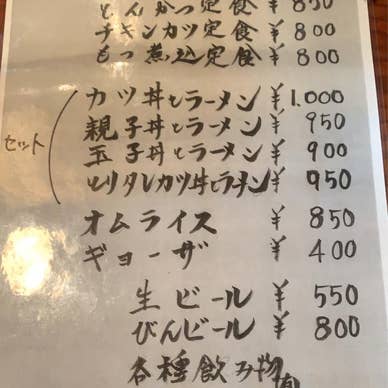 とんかつ定食 ¥850
チキンカツ定食 ¥800
もつ煮込定食 ¥800
セット
カツ丼とラーメン ¥1.000
親子丼とラーメン ¥950
玉子丼とラーメン ¥900
とりタレカツ丼とラーメン ¥950
オムライス ¥850
ギョーザ ¥400
生ビール ¥550
びんビール ¥800
各種飲み物有